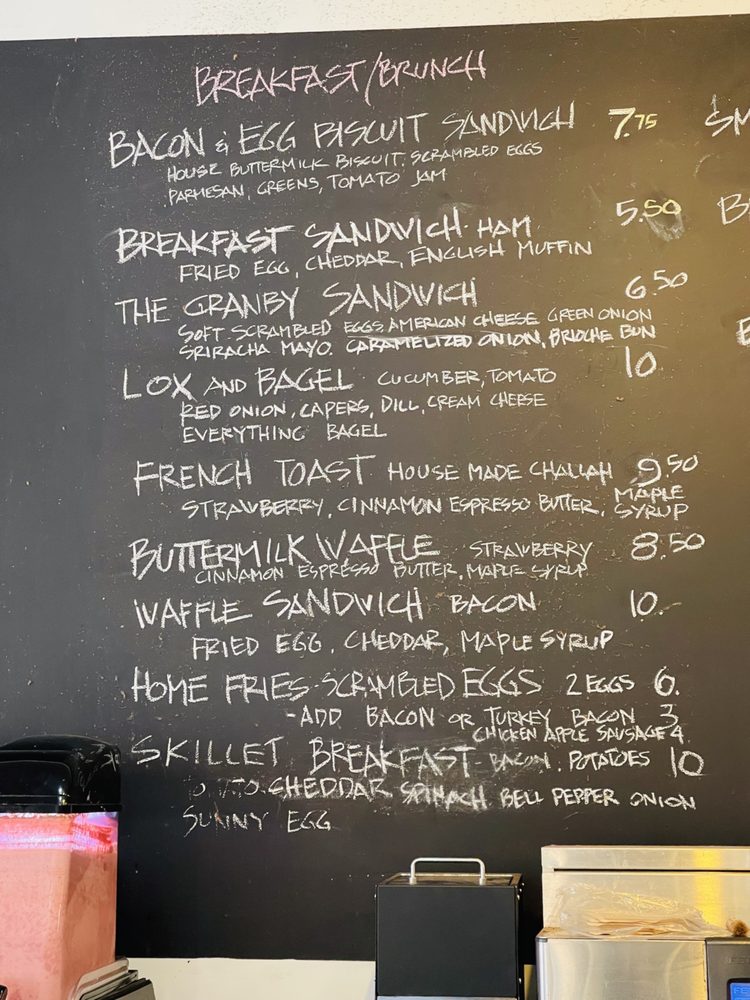 BREAKFAST/BRUNCH
BACON & EGG BISCUIT SANDWICH 7.75
HOUSE BUTTERMILK BISCUIT. SCRAMBLED EGGS
PARMESAN, GREENS, TOMATO JAM
BREAKFAST SANDWICH. HAM 5.50
FRIED EGG, CHEDDAR, ENGLISH MUFFIN
THE GRANBY SANDWICH 6.50
SOFT SCRAMBLED EGGS, AMERICAN CHEESE GREEN ONION
SRIRACHA MAYO. CARAMELIZED ONION, BRIOCHE BUN
LOX AND BAGEL CUCUMBER, TOMATO 10
RED ONION, CAPERS, DILL, CREAM CHEESE
EVERYTHING BAGEL
FRENCH TOAST HOUSE MADE CHALLAH 9.50
STRAWBERRY, CINNAMON ESPRESSO BUTTER, MAPLE SYRUP
BUTTERMILK WAFFLE STRAWBERRY 8.50
CINNAMON ESPRESSO BUTTER, MAPLE SYRUP
WAFFLE SANDWICH BACON 10.
FRIED EGG, CHEDDAR, MAPLE SYRUP
HOME FRIES-SCRAMBLED EGGS 2 EGGS 6.
-ADD BACON OR TURKEY BACON 3
CHICKEN APPLE SAUSAGE 4
SKILLET BREAKFAST- BACON. POTATOES 10
CHEDDAR SPINACH BELL PEPPER ONION
SUNNY EGG